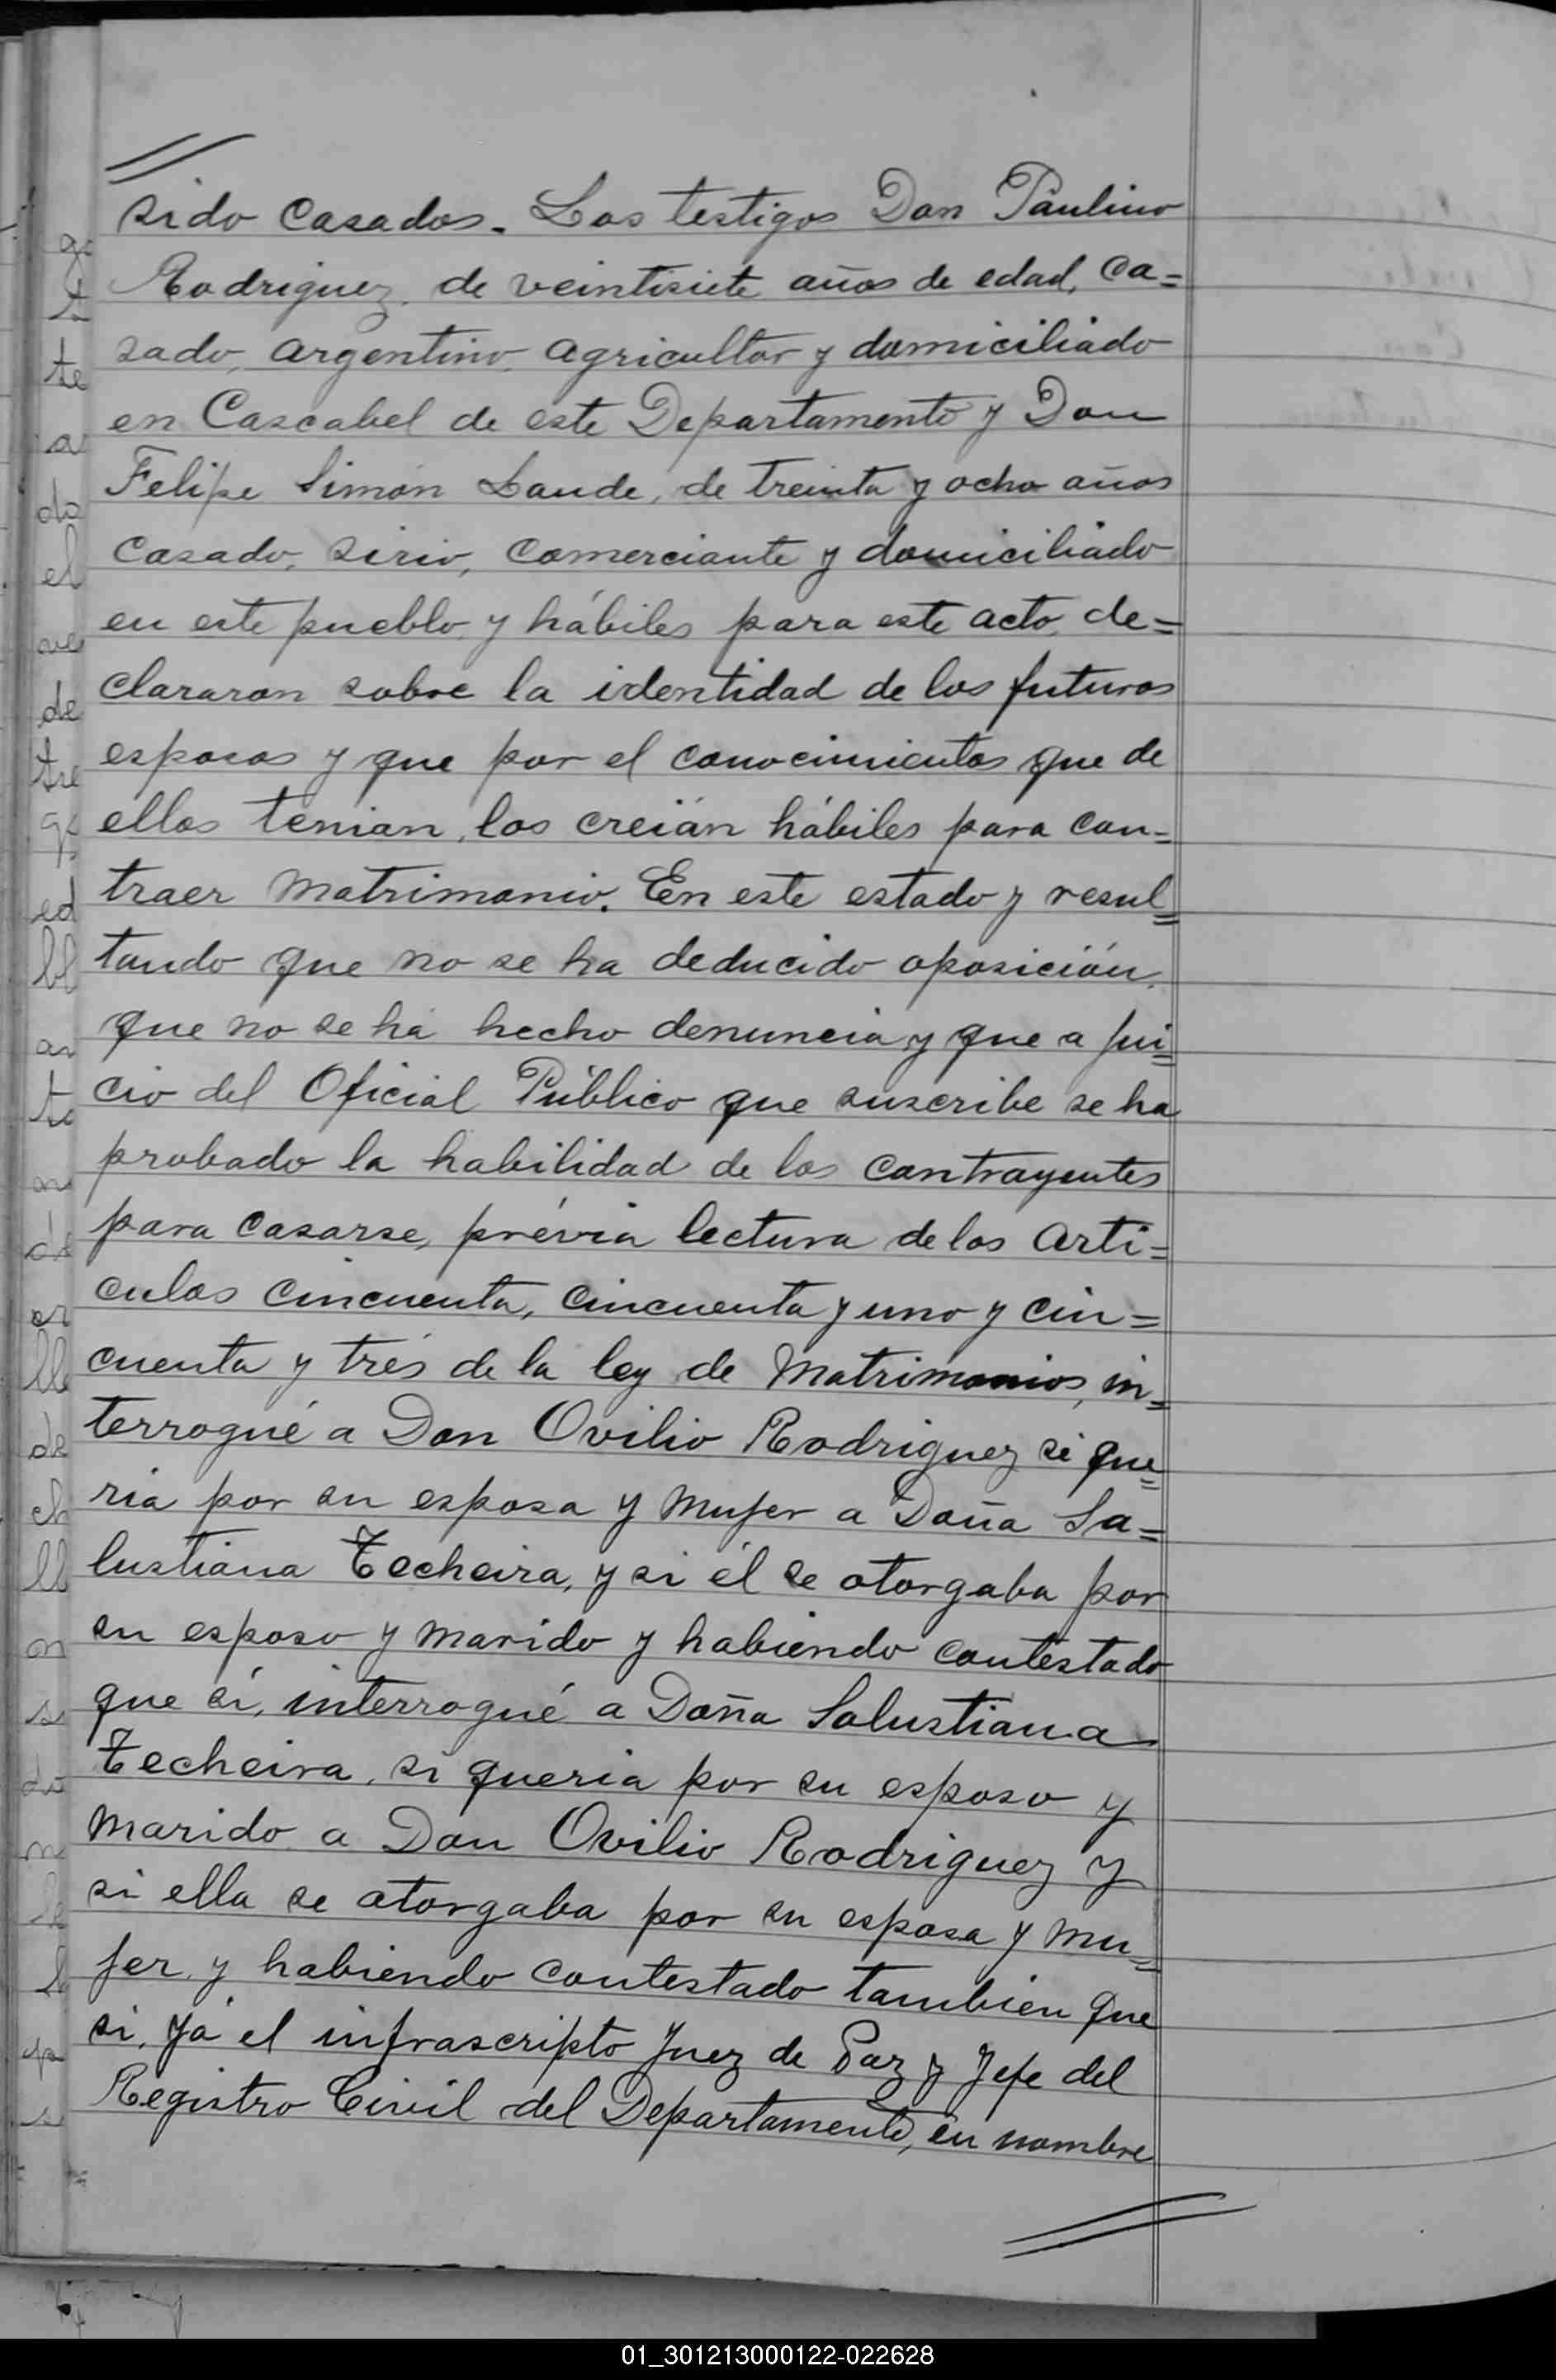 //
sido casados. Los testigos Don Paulino
Rodriguez, de veintisiete años de edad, ca=
sado, argentino, agricultor y domiciliado
en Cascabel de este Departamento y Don
Felipe Simón Daude, de treinta y ocho años
casado, sirio, comerciante y domiciliado
en este pueblo, y hábiles para este acto, de=
clararon sobre la identidad de los futuros
esposos y que por el conocimientos que de
ellos tenian, los creián hábiles para con=
traer matrimonio. En este estado y resul=
tando que no se ha deducido oposición,
que no se há hecho denuncia y que a jui=
cio del Oficial Público que suscribe se ha
probado la habilidad de los contrayentes
para casarse, prévia lectura de los arti=
culos cincuenta, cincuenta y uno y cin=
cuenta y trés de la ley de Matrimonios, in=
terrogué a Don Ovilio Rodriguez si que=
ria por su esposa y mujer a Doña Sa=
lustiana Techeira, y si él se otorgaba por
su esposo y marido y habiendo contestado
que sí, interrogué a Doña Salustiana
Techeira, si queria por su esposo y
marido a Don Ovilio Rodriguez y
si ella se otorgaba por su esposa y mu=
jer, y habiendo contestado tambien que
si, yó el infrascripto Juez de Paz y Jefe del
Registro Civil del Departamento, en nombre
//
01_301213000122-022628